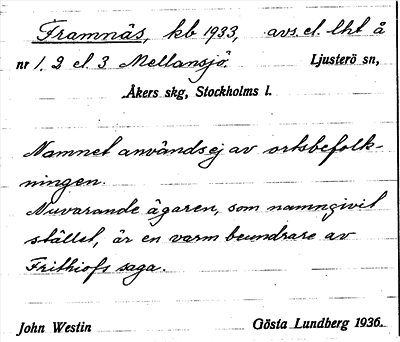 Framnäs, kb 1933, avs. el. lht å
nr 1. 2 el. 3 Mellansjö. Ljusterö sn,
Åkers skg, Stockholms l.
Namnet användes ej av ortsbefolk-
ningen.
Nuvarande ägaren, som namngivit
stället, är en varm beundrare av
Frithiofs saga.
John Westin Gösta Lundberg 1936.